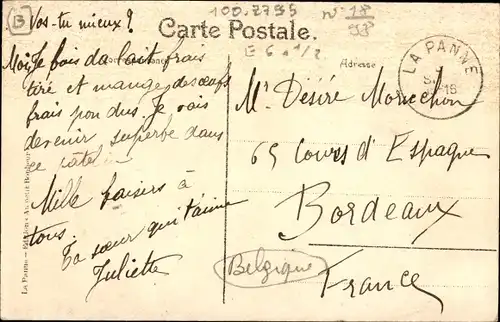 B
Vas-tu mieux ?
100.2795
n° 18
98
Carte Postale.
E 6 a 1/2
Moi je bois du lait frais
tiré et mange des oeufs
frais pondus. Je vais
devenir superbe dans
ce côté !
Mille baisers à
tous.
Ta soeur qui t'aime
Juliette
Adresse
LA PANNE
Mr Désiré
65 Cours d'Espagne
Bordeaux
France
Belgique
La Panne — Edition